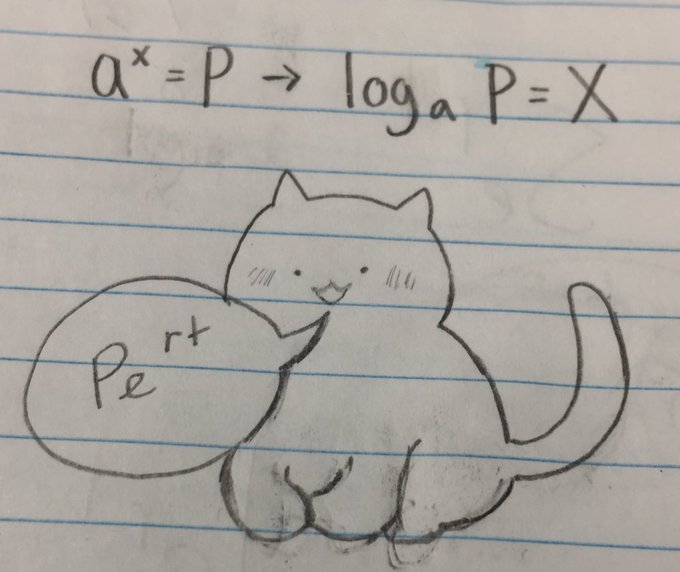 aˣ = P → logₐ P = X
Peʳᵗ